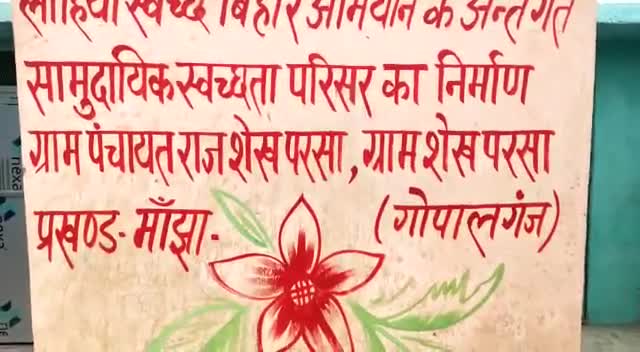 लोहिया स्वच्छ बिहार अभियान के अन्तर्गत
सामुदायिक स्वच्छता परिसर का निर्माण
ग्राम पंचायत राज शेख परसा, ग्राम शेख परसा
प्रखण्ड- माँझा- (गोपालगंज)